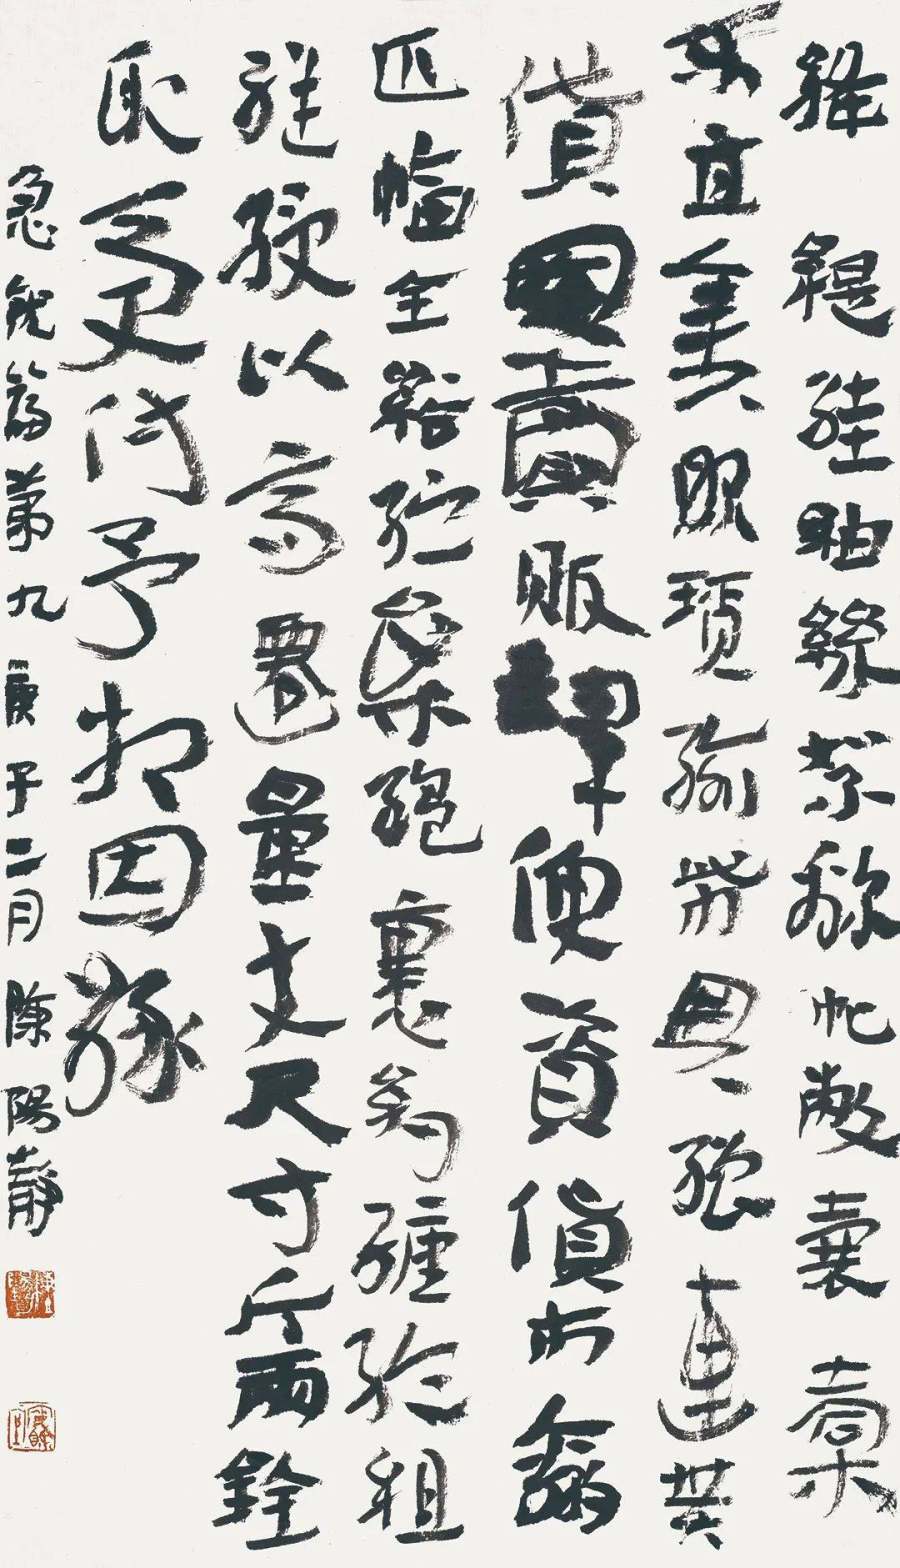 絳緹絓紬絲絮綿帊敝囊橐
不直錢服瑣緰幣與繒連貰
貸買賣販肆便資貨市贏
匹幅全綌紵枲縕裹約纏綸組
縌綬以高遷量丈尺寸斤兩銓
取受付予相因緣
急就篇第九 庚子二月 陳陽靜